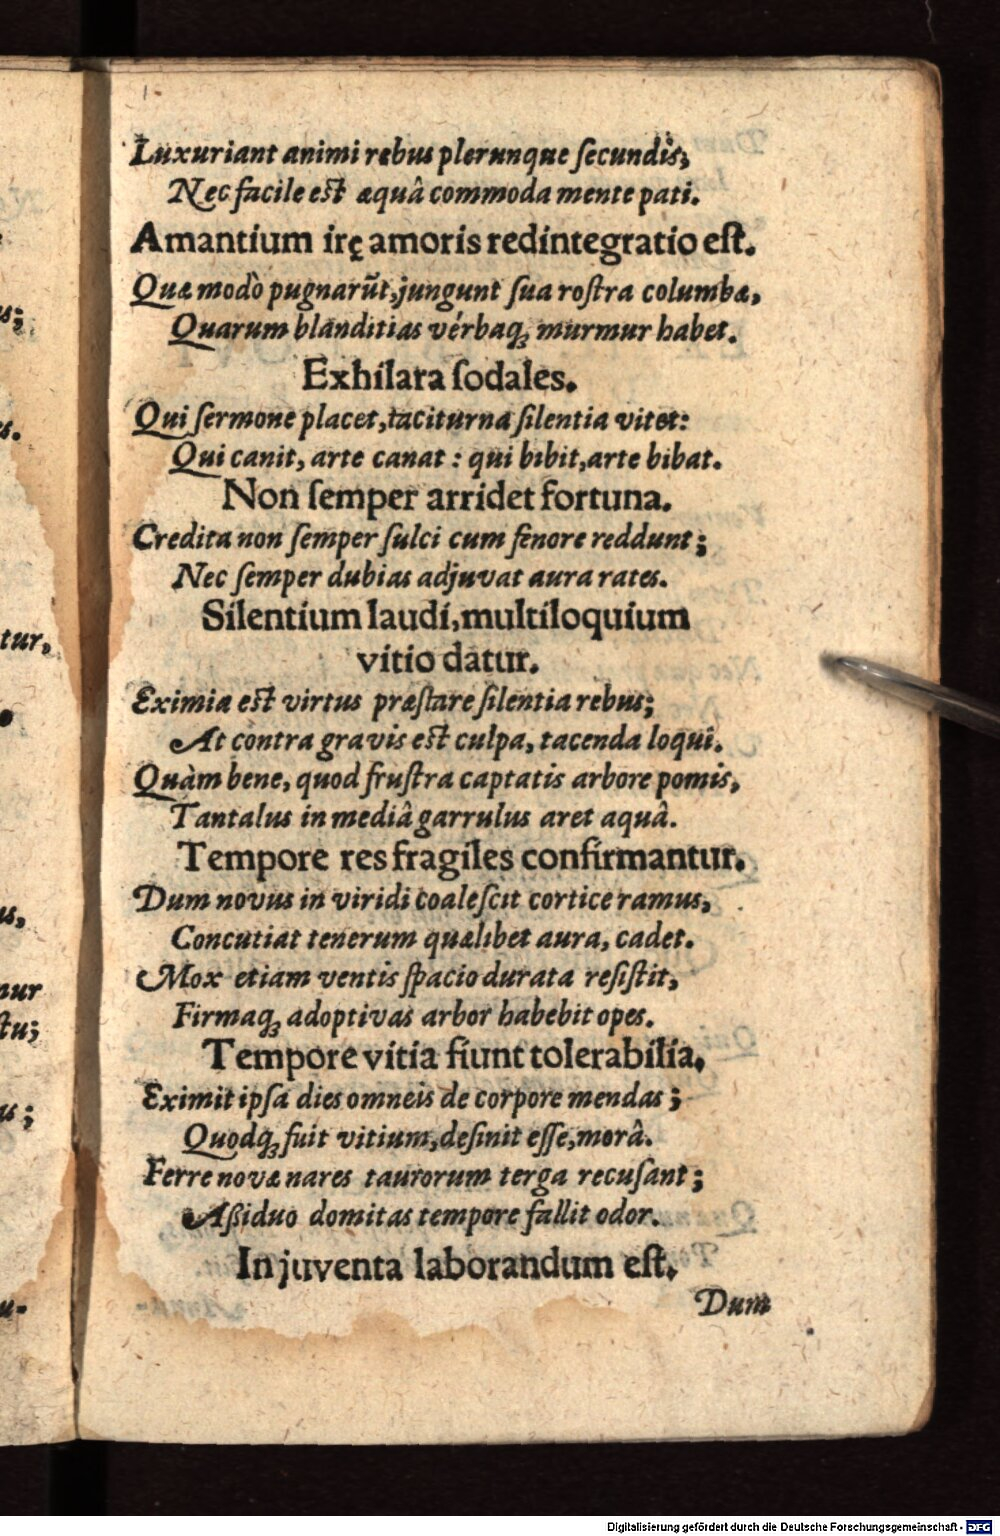 Luxuriant animi rebus plerunque ſecundis,
Nec facile est æquâ commoda mente pati.
Amantium irę amoris redintegratio eſt.
Quæ modò pugnarũt, jungunt ſua roſtra columbæ,
Quarum blanditias vérbaq; murmur habet.
Exhilara ſodales.
Qui ſermone placet, taciturna ſilentia vitet:
Qui canit, arte canat: qui bibit, arte bibat.
Non ſemper arridet fortuna.
Credita non ſemper ſulci cum fenore reddunt;
Nec ſemper dubias adjuvat aura rates.
Silentium laudi, multiloquium
vitio datur.
Eximia est virtus præſtare ſilentia rebus;
At contra gravis est culpa, tacenda loqui.
Quàm bene, quod fruſtra captatis arbore pomis,
Tantalus in mediâ garrulus aret aquâ.
Tempore res fragiles confirmantur.
Dum novus in viridi coaleſcit cortice ramus,
Concutiat tenerum quælibet aura, cadet.
Mox etiam ventis ſpacio durata reſiſtit,
Firmaq; adoptivas arbor habebit opes.
Tempore vitia fiunt tolerabilia.
Eximit ipſa dies omneis de corpore mendas;
Quodq; fuit vitium, deſinit eſſe, morâ.
Ferre novæ nares taurorum terga recuſant;
Aßiduo domitas tempore fallit odor.
In juventa laborandum eſt.
Dum
Digitalisierung gefördert durch die Deutsche Forschungsgemeinschaft - DFG